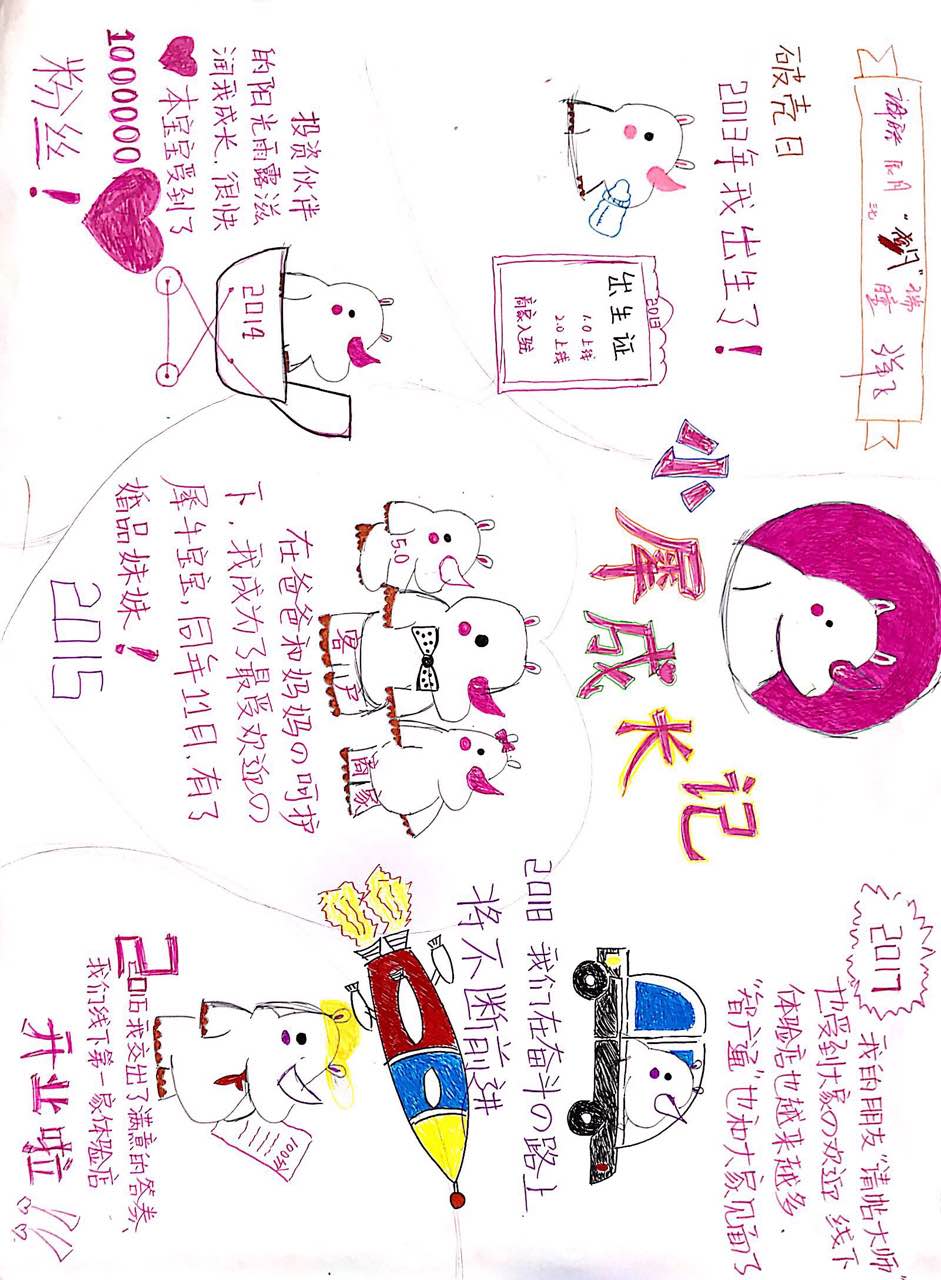 小犀成长记
破壳日
2013年我出生了！
2013
出生证
1.0上线
2.0上线
商家入驻
投资伙伴
的阳光雨露滋
润我成长、很快
本宝宝受到了
1000000
粉丝！
2014
5.0
客户
商家
在爸爸和妈妈の呵护
下，我成为了最受欢迎の
犀牛宝宝，同年11月，有了
婚品妹妹！
2015
2016我交出了满意的答卷、
我们线下第一家体验店
开业啦
100分
2017
我的朋友“请帖大师”
也受到大家の欢迎 线下
体验店也越来越多．
“智广通”也和大家见面了
2018 我们在奋斗の路上
将不断前进